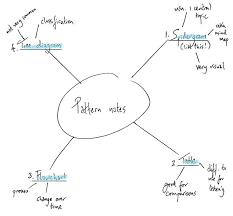 Pattern notes
usu. 1 central
topic
1. Spidergram
(Like this!)
very visual
mind map
2. Table
good for
comparisons
diff. to
use for
listening
3. Flowchart
process
change over
time
4. Tree diagram
not very common
classification